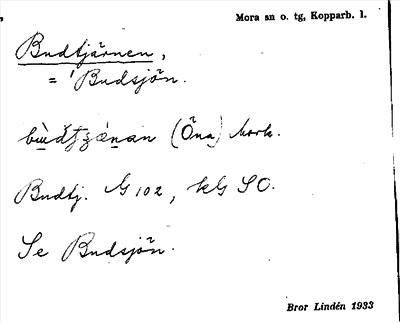 Mora sn o. tg, Kopparb. l.
Budtjärnen,
= Budsjön.
(Öna) Mork.
Budtj. G 102, kG SO.
Se Budsjön.
Bror Lindén 1933